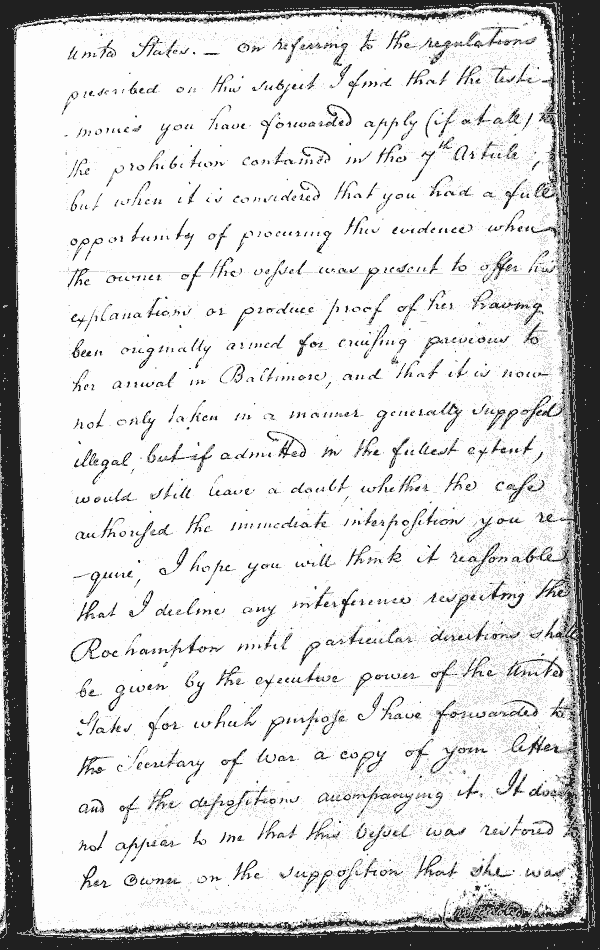 United States. — On referring to the regulations
prescribed on this subject I find that the testi-
-monies you have forwarded apply (if at all) to
the prohibition contained in the 7th Article;
but when it is considered that you had a full
opportunity of procuring this evidence when
the owner of the vessel was present to offer his
explanations or produce proof of her having
been originally armed for cruising previous to
her arrival in Baltimore, and that it is now
not only taken in a manner generally supposed
illegal, but if admitted in the fullest extent,
would still leave a doubt, whether the case
authorised the immediate interposition you re-
-quire, I hope you will think it reasonable
that I decline any interference respecting the
Roehampton until particular directions shall
be given by the executive power of the United
States for which purpose I have forwarded to
the Secretary of War a copy of your letter
and of the depositions accompanying it. It does
not appear to me that this Vessel was restored to
her Owner on the supposition that she was